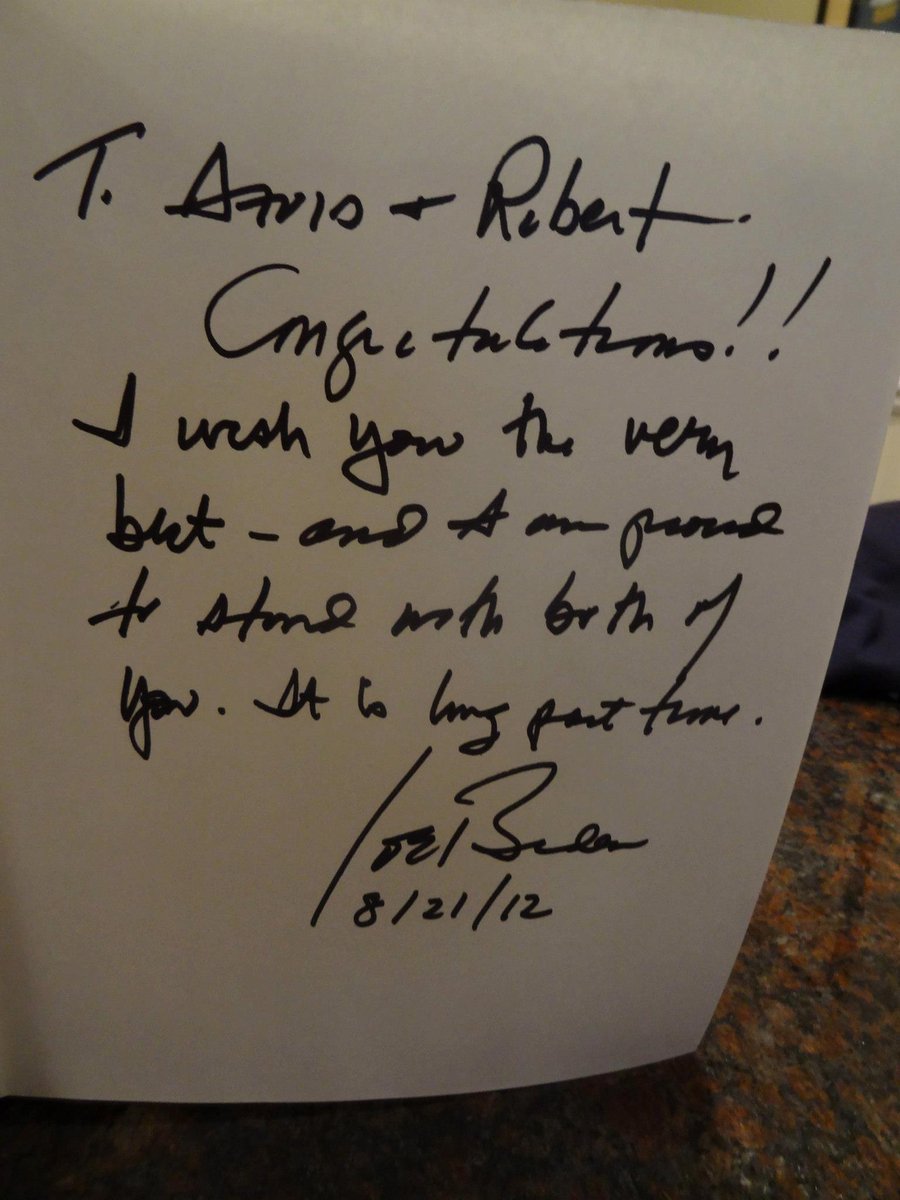 To David + Robert.
Congratulations!!
I wish you the very
best - and I am proud
to stand with both of
you. It is long past time.
Joe Biden
8/21/12